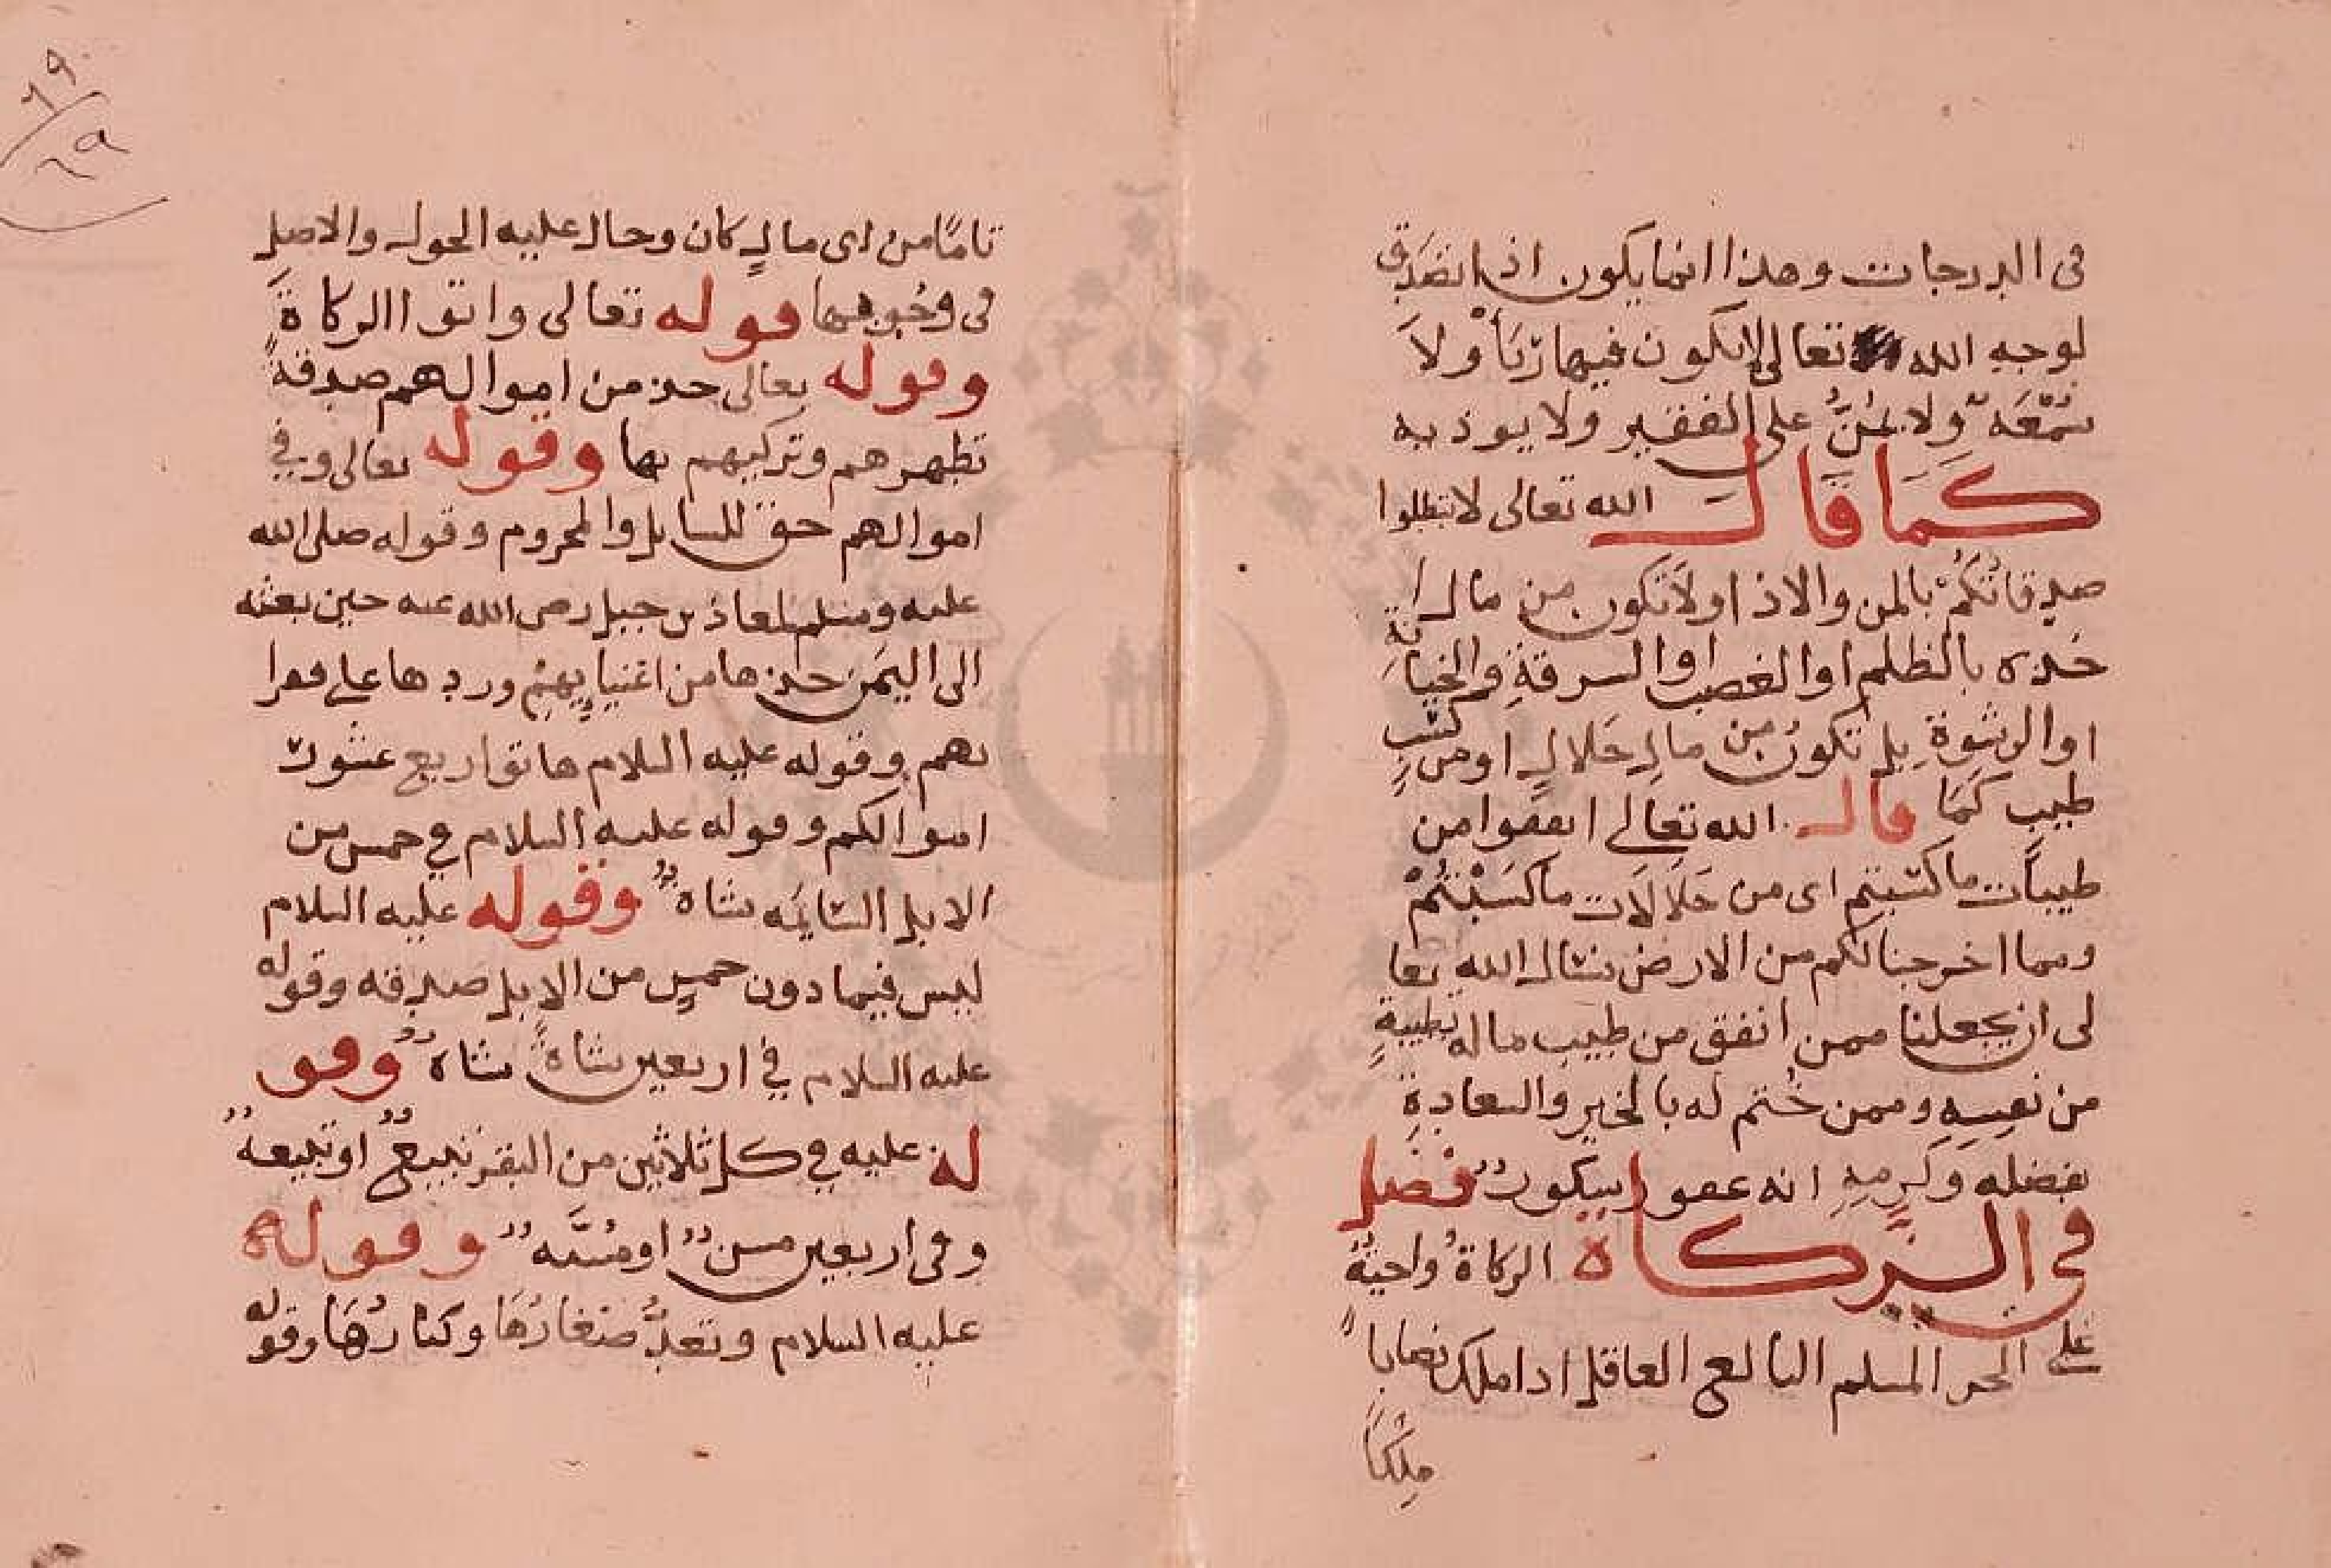 فى الدرجات وهذا انما يكون اذا تصدق
لوجهِ الله تعالى لايكون فيها رياً ولاَ
سُمْعَه ولا يمُنُّ على الفقير ولا يوذيه
كَمَا قَالَ الله تعالى لا تبطلوا
صدقاتكُمْ بالمن والاذا ولاَ تكون من مال ا
خَذه بالظلم اوالغصب اوالسرقةِ والخيانةِ
اوالرشوةِ بل تكونُ من مالٍ حَلالٍ اومن كسْبٍ
طيبٍ كَمَا قال الله تعالى انفقوا من
طيبات ماكسبتم اى من حَلاَلاَت ماكَسَبْتُمْ
ومما اخرجنا لكم من الارض نسال الله تعا
لى ان يجعلنا ممن انفق من طيب ماله بطيبةٍ
من نفسِهِ وممن خُتم له بالخير والسعادةِ
بفضله وكرمِهِ انه عفو شكور فصل
فى الزكاة الزكاةُ واجبَةٌ
على الحر المسلم البالغ العاقل اذا ملك نصاباً
مِلْكاً
٦٩
٢٩
تامًا من اى مالٍ كان وحال عليه الحول والاصل
فى وجُوبها قوله تعالى واتوا الزكاةَ
وقوله تعالى خذ من اموالهم صدقةً
تطهرهم وتزكيهم بها وقوله تعالى وفي
اموالهم حق للسايل والمحروم وقوله صلى الله
عليه وسلم لمعاذ بن جبل رضى الله عنه حين بعثه
الى اليَمن خذها من اغنيايِهِمْ وردها على فقرا
يهم وقوله عليه السلام هاتوا ربع عشور
اموالكم وقوله عليه السلام في خمس من
الابل السَايمَه شاةٌ وقوله عليه السلام
ليس فيما دون خمسٍ من الابل صدقه وقوله
عليه السلام في اربعين شاةً شاةٌ وقو
له عليه في كل ثلاثين من البقر تبيعٌ او تبيعةٌ
وفى اربعين مسنٌ اومُسنَّهٌ وقوله
عليه السلام وتعدُّ صغارُهَا وكبارُهَا وقوله